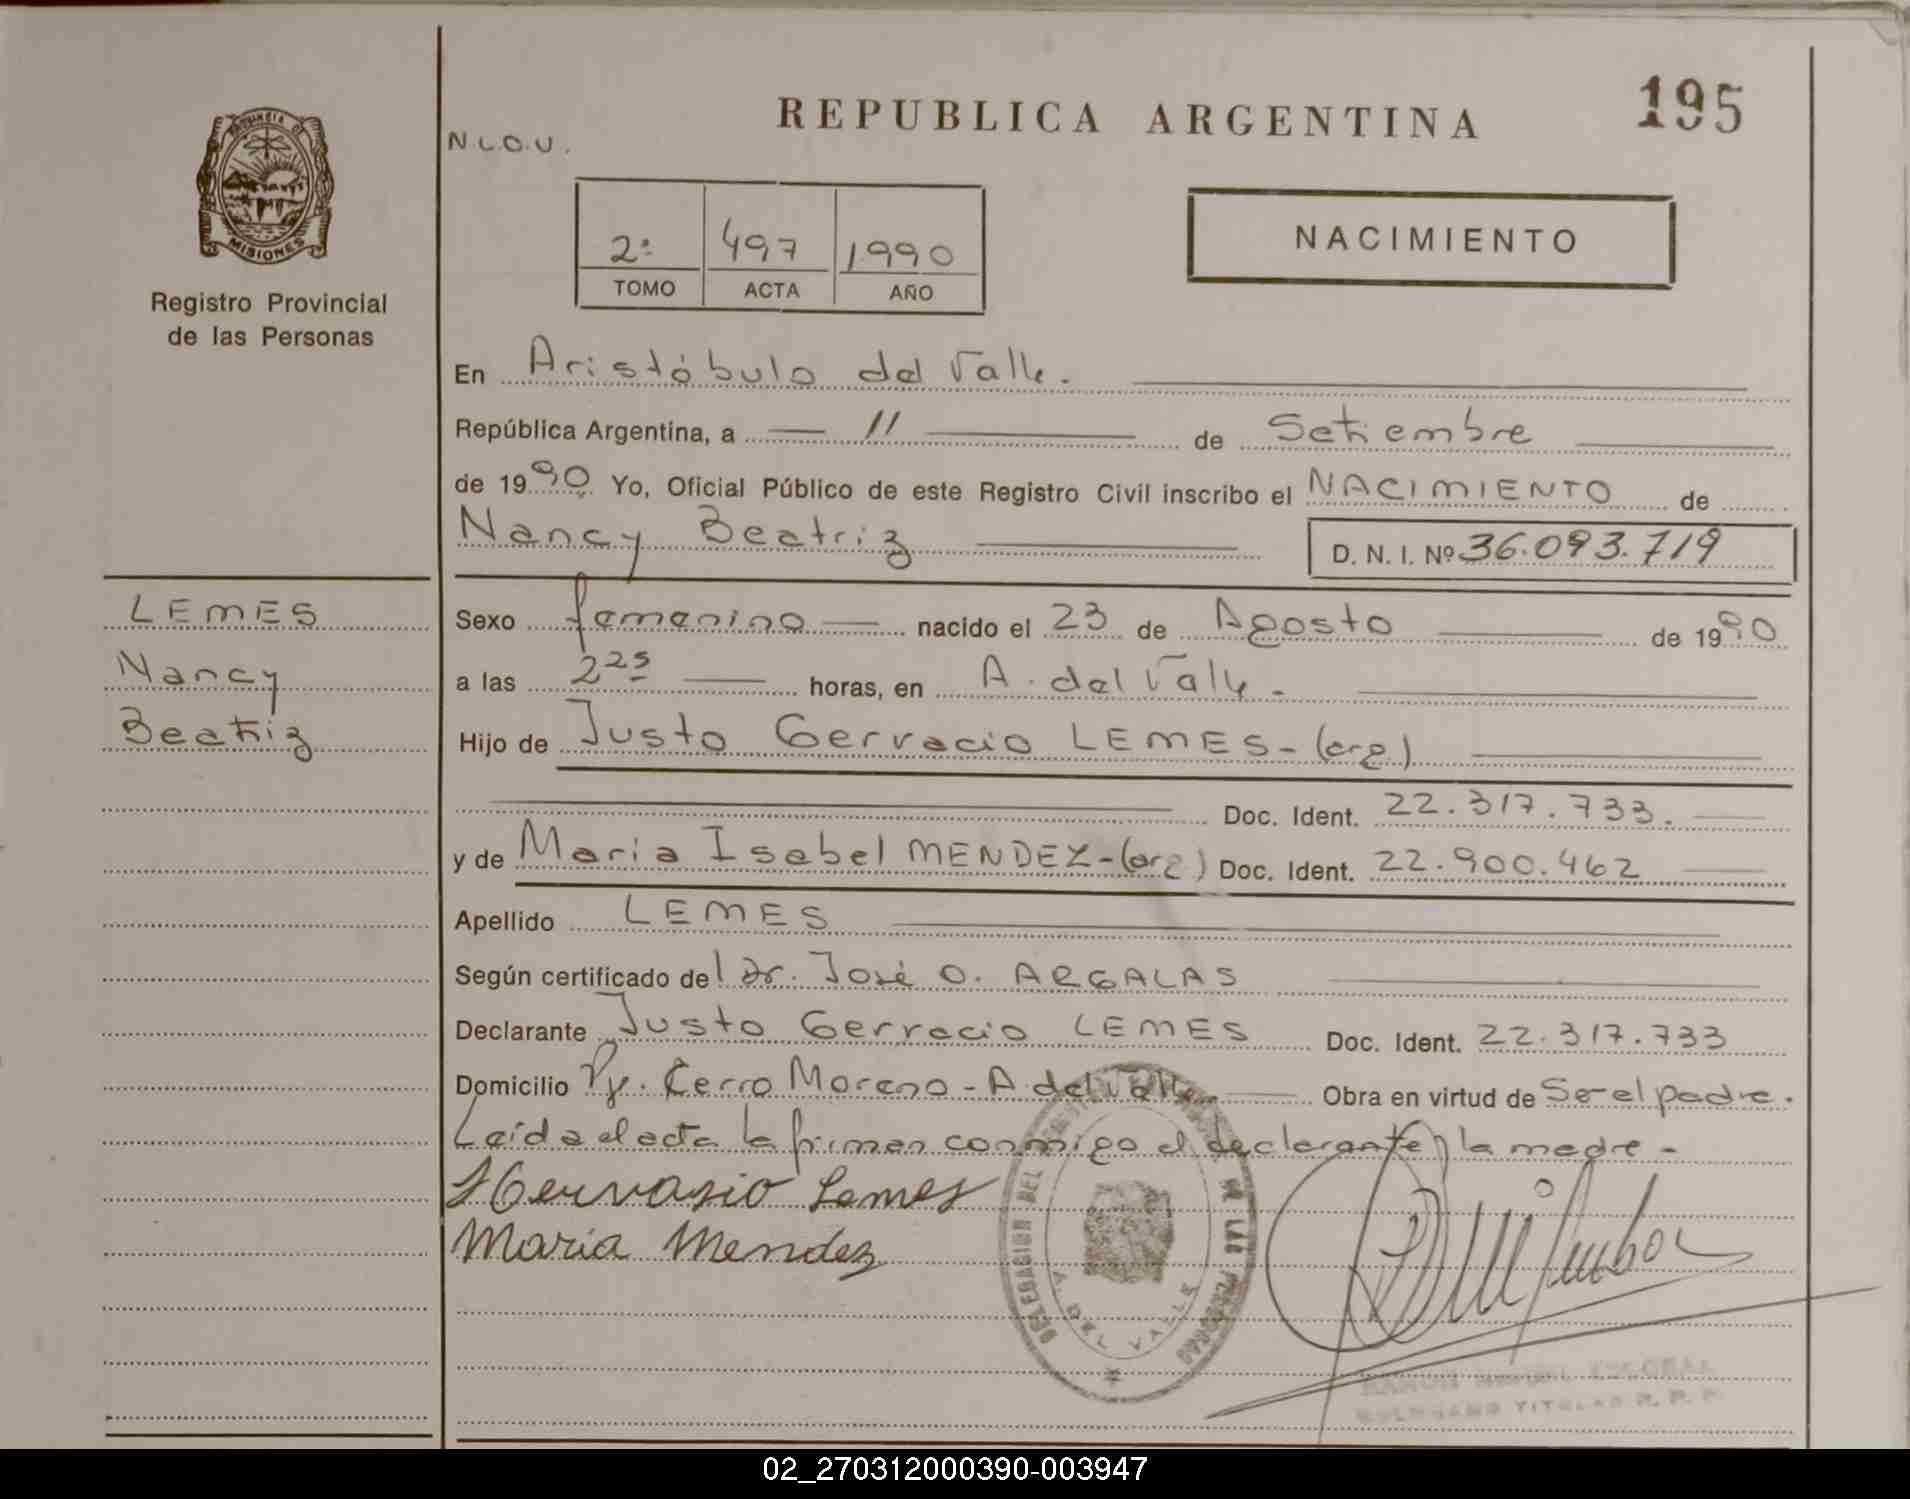 REPUBLICA ARGENTINA
195
N.L.O.U.
PROVINCIA DE
MISIONES
Registro Provincial
de las Personas
2º 497 1990
TOMO ACTA AÑO
NACIMIENTO
En Aristóbulo del Valle.
República Argentina, a 11 de Setiembre
de 1990 Yo, Oficial Público de este Registro Civil inscribo el NACIMIENTO de
Nancy Beatriz
D. N. I. Nº 36.093.719
LEMES
Nancy
Beatriz
Sexo femenino nacido el 23 de Agosto de 1990
a las 2 25 horas, en A. del Valle.
Hijo de Justo Gervacio LEMES-(arg)
Doc. Ident. 22.317.733.
y de Maria Isabel MENDEZ-(arg) Doc. Ident. 22.900.462
Apellido LEMES
Según certificado del Dr. José O. ARGALAS
Declarante Justo Gervacio LEMES Doc. Ident. 22.317.733
Domicilio Pje. Cerro Moreno - A del Valle Obra en virtud de Ser el padre.
Leida el acta la firman conmigo el declarante y la madre -
J Gervasio Lemes
Maria Mendez
DELEGACION DEL DE LAS PERSONAS
A. DEL VALLE
TITULAR R. P. P.
02_270312000390-003947